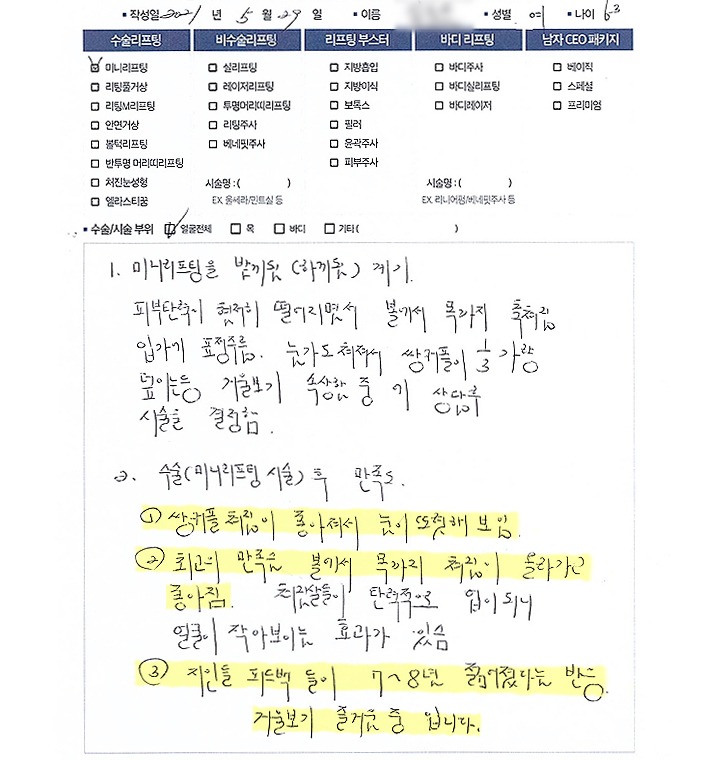 • 작성일 2021 년 5 월 29 일 • 이름 • 성별 여 • 나이 63
수술리프팅 비수술리프팅 리프팅 부스터 바디 리프팅 남자 CEO 패키지
미니리프팅 실리프팅 지방흡입 바디주사 베이직
리팅풀거상 레이저리프팅 지방이식 바디실리프팅 스페셜
리팅M리프팅 투명머리띠리프팅 보톡스 바디레이저 프리미엄
안면거상 리팅주사 필러
볼턱리프팅 베네핏주사 윤곽주사
반투명 머리띠리프팅 피부주사
처진눈성형 시술명 : ( ) 시술명 : ( )
엘라스티꿈 EX. 울쎄라/민트실 등 EX. 리니어펌/베네핏주사 등
• 수술/시술 부위 얼굴전체 목 바디 기타 ( )
1. 미니리프팅을 받게된 (하게된) 계기.
피부탄력이 현저히 떨어지면서 볼에서 목까지 축쳐짐
입가에 표정주름. 눈가도 쳐져서 쌍커풀이 1/3 가량
덮이는등 거울보기 속상한 중 에 상담후
시술을 결정함.
2. 수술(미니리프팅 시술) 후 만족도.
① 쌍커풀 쳐짐이 좋아져서 눈이 또렷해 보임.
② 최고의 만족은 볼에서 목까지 쳐짐이 올라가고
좋아짐. 쳐짐살들이 탄력적으로 업이 되니
얼굴이 작아보이는 효과가 있슴
③ 지인들 피드백 들이 7~8년 젊어졌다는 반응.
거울보기 즐거운 중 입니다.